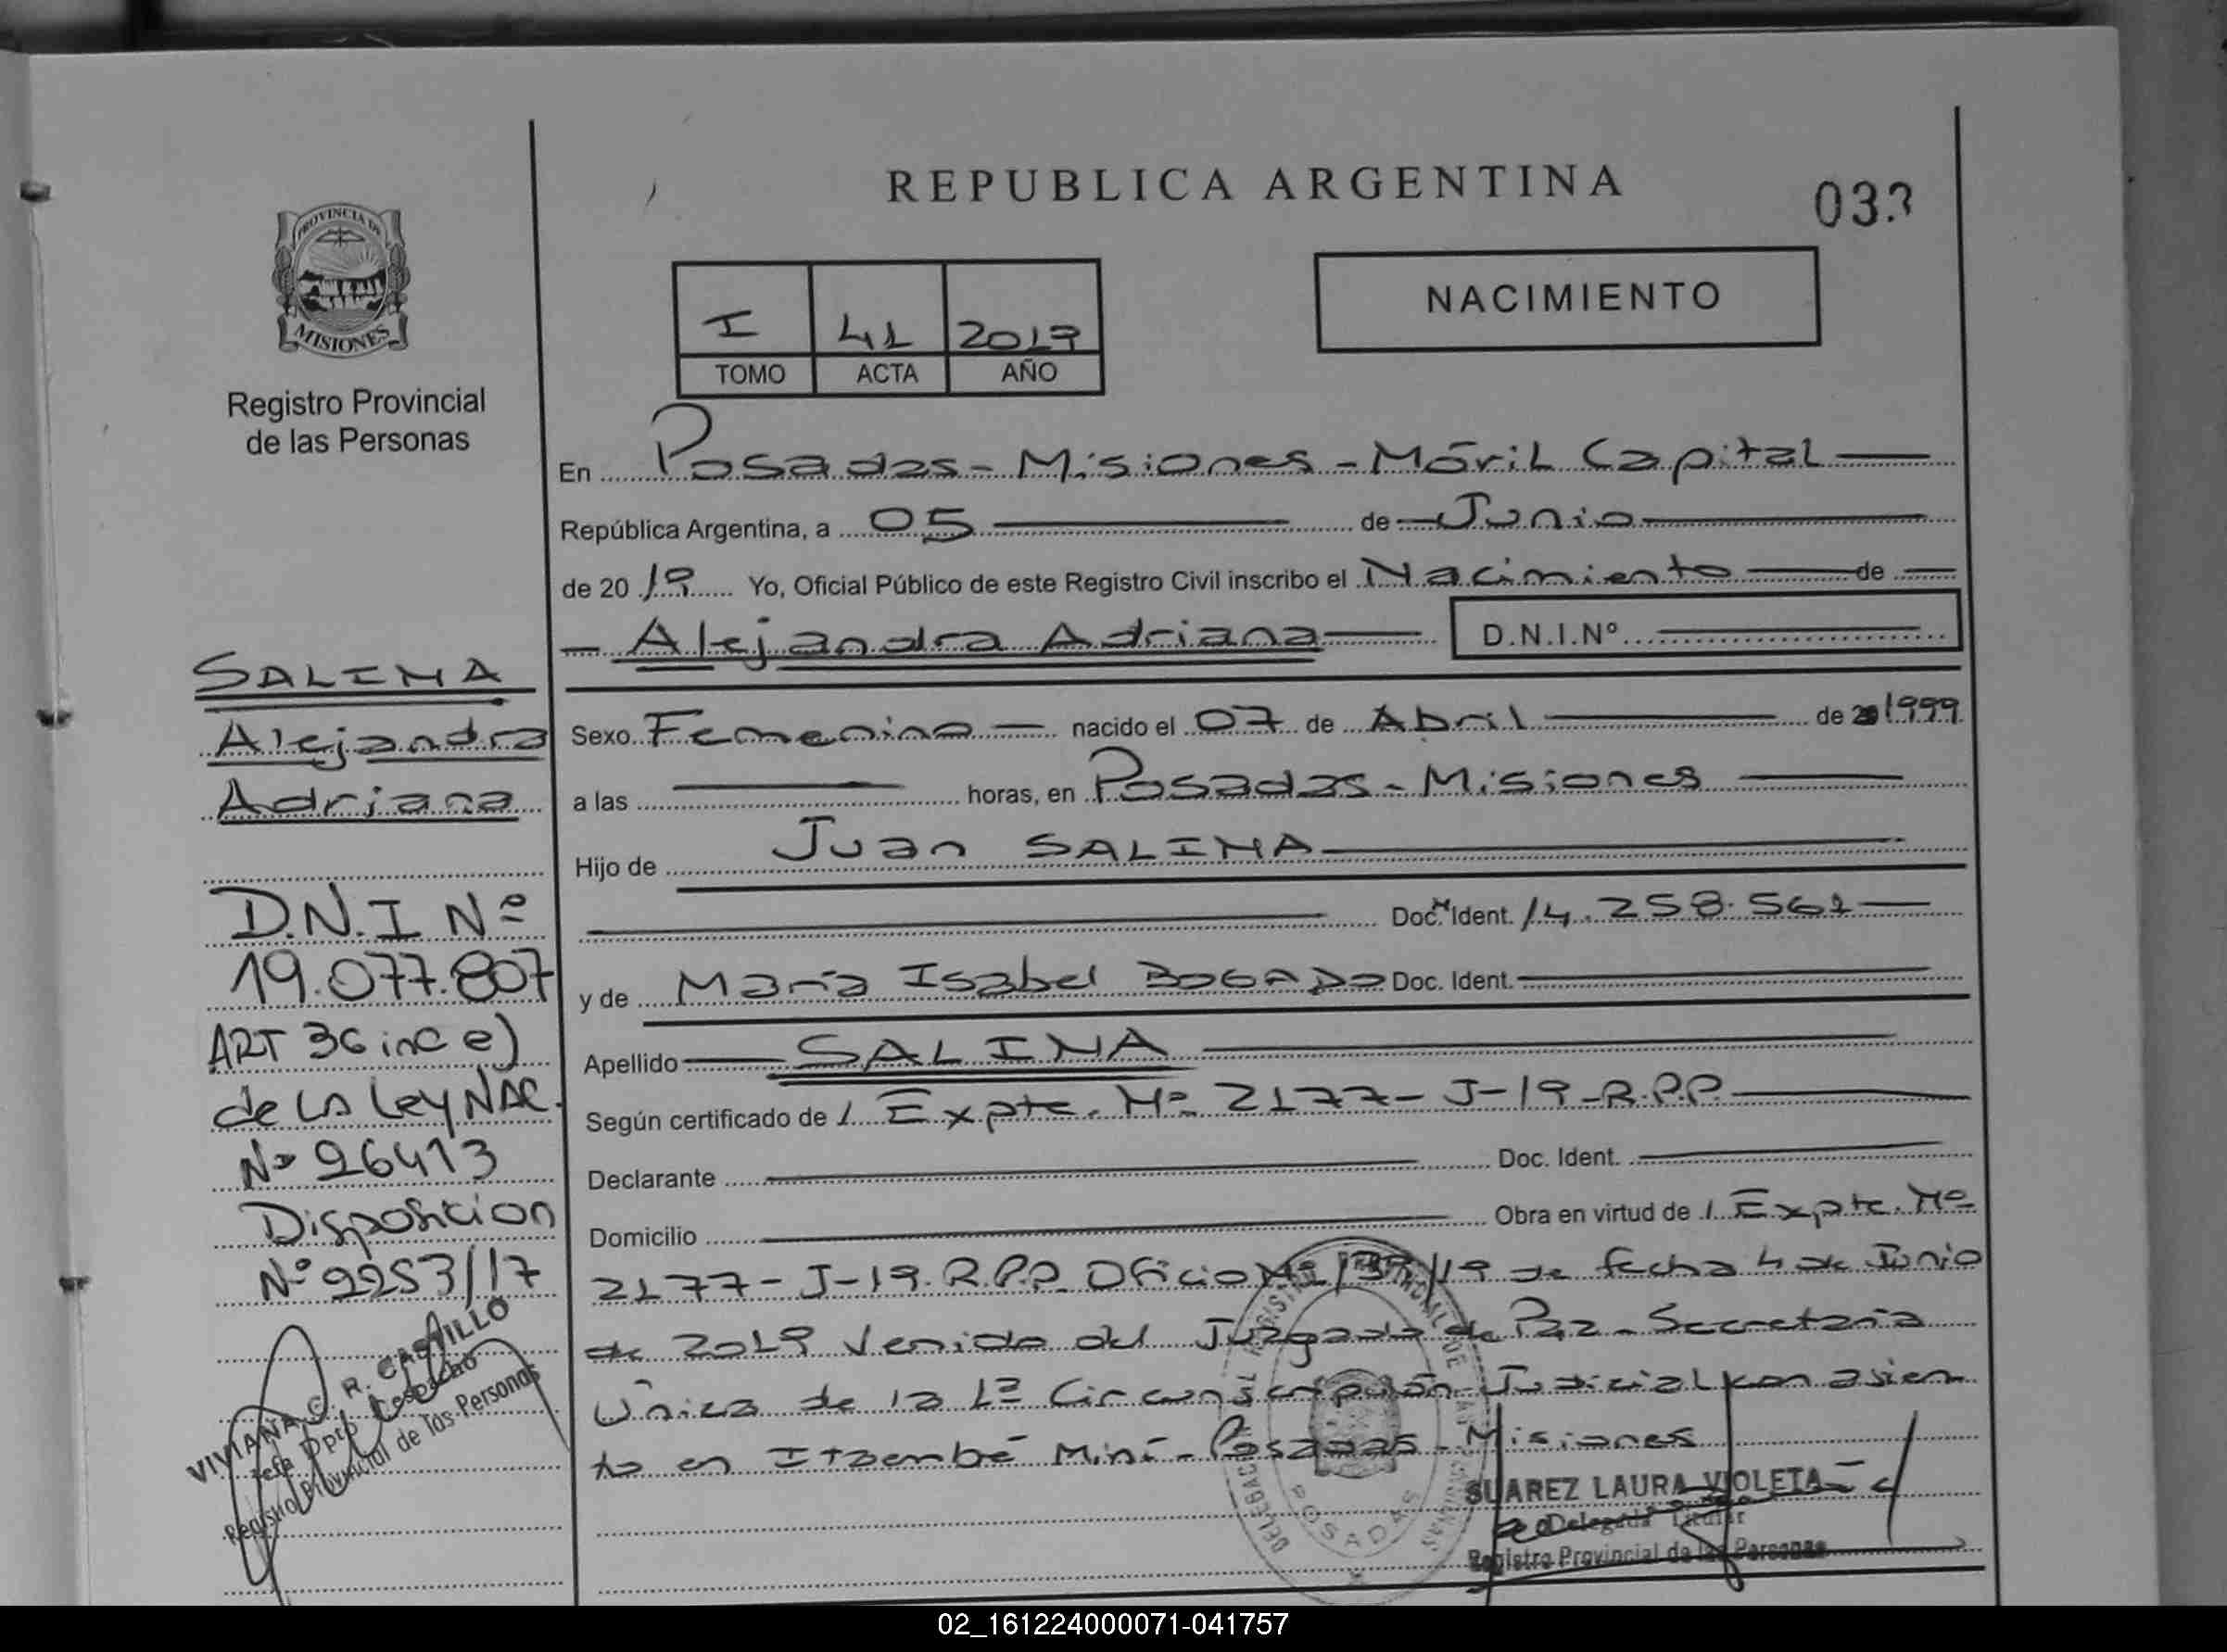 REPUBLICA ARGENTINA
033
PROVINCIA DE
MISIONES
Registro Provincial
de las Personas
NACIMIENTO
I 41 2019
TOMO ACTA AÑO
En Posadas - Misiones - Móvil Capital
República Argentina, a 05 de Junio
de 2019 Yo, Oficial Público de este Registro Civil inscribo el Nacimiento de
Alejandra Adriana D.N.I.Nº
Sexo Femenino nacido el 07 de Abril de 1999
a las horas, en Posadas - Misiones
Hijo de Juan SALINA
Doc. Ident. M 14.258.561
y de María Isabel BOGADO Doc. Ident.
Apellido SALINA
Según certificado de / Expte. Nº 2177 - J - 19 - R.P.P.
Declarante Doc. Ident.
Domicilio Obra en virtud de / Expte. Nº
2177 - J - 19. R.P.P. Oficio Nº 139/19 de fecha 4 de Junio
de 2019 Venido del Juzgado de Paz - Secretaría
Única de la 1ª Circunscripción Judicial con asien
to en Itaembé Miní - Posadas - Misiones
SUAREZ LAURA VIOLETA
Delegada Titular
Registro Provincial de las Personas
SALINA
Alejandra
Adriana
D.N.I Nº
19.077.807
ART 36 inc e)
de la Ley NAC.
Nº 26413
Disposicion
Nº 2253/17
VIVIANA C. R. CASTILLO
Jefa Dpto Despacho
Registro Provincial de las Personas
POSADAS
02_161224000071-041757